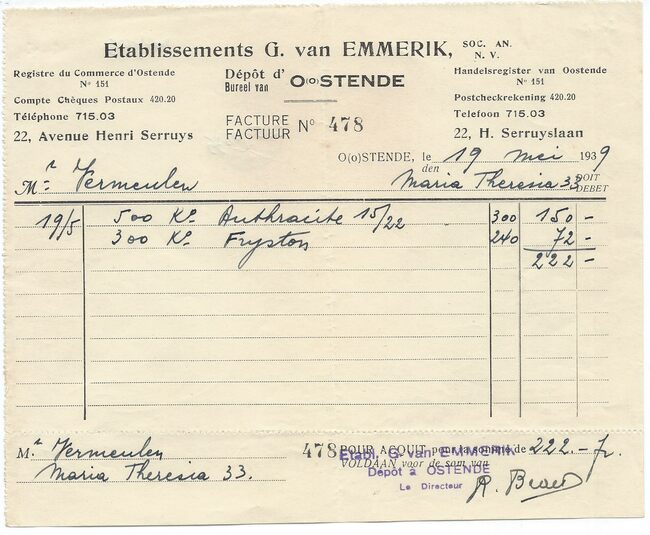 Etablissements G. van EMMERIK, SOC. AN. N. V.
Registre du Commerce d'Ostende
No 151
Compte Chèques Postaux 420.20
Téléphone 715.03
22, Avenue Henri Serruys
Dépôt d' Bureel van O(o)STENDE
FACTURE FACTUUR No 478
Handelsregister van Oostende
No 151
Postcheckrekening 420.20
Telefoon 715.03
22, H. Serruyslaan
O(o)STENDE, le den 19 mei 1939
Mr Vermeulen Maria Theresia 33 DOIT DEBET
19/5 500 Ko Anthracite 15/22 300 150 -
300 Ko Fryston 240 72 -
222 -
Mr Vermeulen
Maria Theresia 33.
478 POUR ACQUIT, pour la somme de 222.- fr.
VOLDAAN voor de som van
Etabl. G. van EMMERIK
Dépôt à OSTENDE
Le Directeur